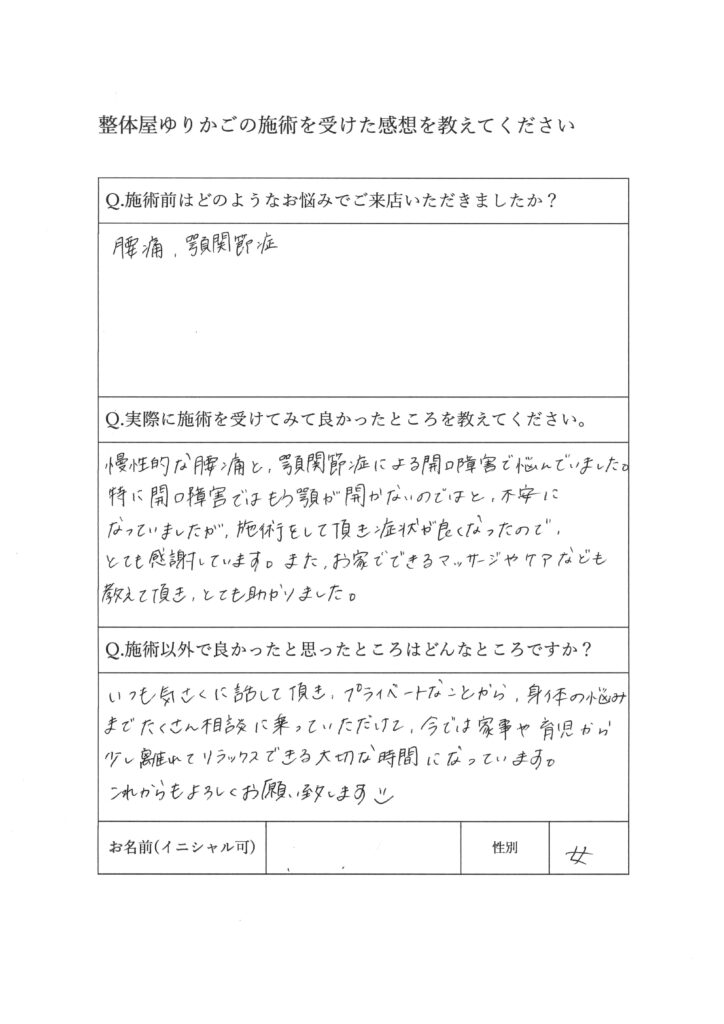 整体屋ゆりかごの施術を受けた感想を教えてください
Q.施術前はどのようなお悩みでご来店いただきましたか？
腰痛、顎関節症
Q.実際に施術を受けてみて良かったところを教えてください。
慢性的な腰痛と、顎関節症による開口障害で悩んでいました。
特に開口障害ではもう顎が開かないのではと、不安に
なっていましたが、施術をして頂き症状が良くなったので、
とても感謝しています。また、お家でできるマッサージやケアなども
教えて頂き、とても助かりました。
Q.施術以外で良かったと思ったところはどんなところですか？
いつも気さくに話して頂き、プライベートなことから、身体の悩み
までたくさん相談に乗っていただけて、今では家事や育児から
少し離れてリラックスできる大切な時間になっています。
これからもよろしくお願い致します
お名前(イニシャル可) 性別 女